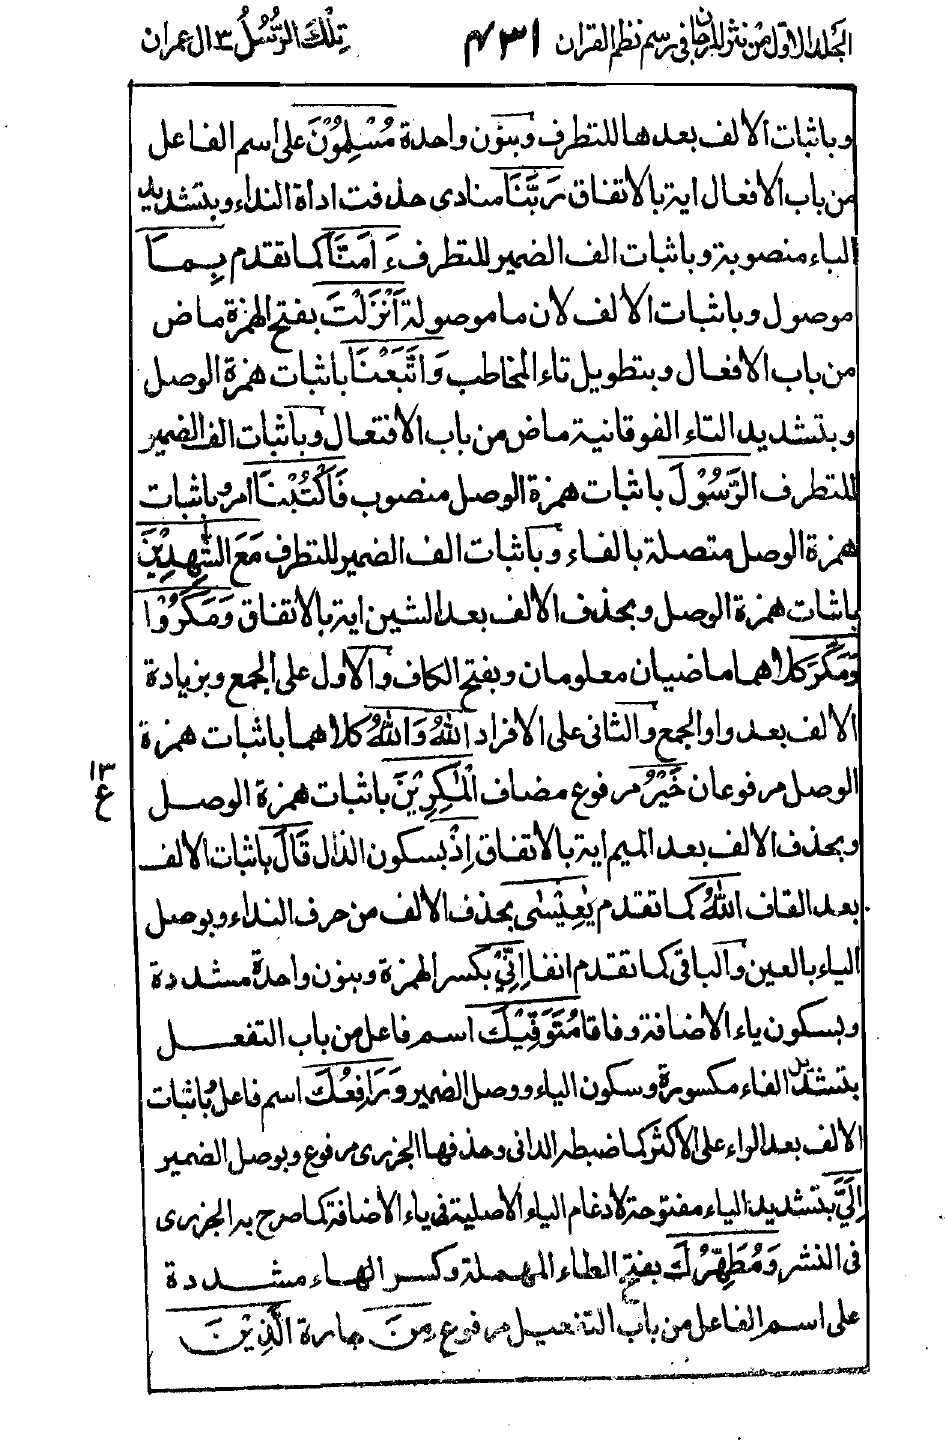 المجلد الاول من نثر المرجان في رسم نظم القران ٤٣١ تِلْكَ الرُّسُلُ ٣ ال عمران
وباثبات الالف بعدها للتطرف وبنون واحدة مُسْلِمُوْنَ على اسم الفاعل
من باب الافعال اية بالاتفاق رَبَّنَا منادى حذفت اداة النداء وبتشديد
الباء منصوبة وباثبات الف الضمير للتطرف ءَامَنَّا كما تقدم بِمَا
موصول وباثبات الالف لان ما موصولة اَنْزَلْتَ بفتح الهمزة ماض
من باب الافعال وبتطويل تاء المخاطب وَاتَّبَعْنَا باثبات همزة الوصل
وبتشديد التاء الفوقانية ماض من باب الافتعال وباثبات الف الضمير
للتطرف الرَّسُوْلَ باثبات همزة الوصل منصوب فَاكْتُبْنَا امر وباثبات
همزة الوصل متصلة بالفاء وباثبات الف الضمير للتطرف مَعَ الشّٰهِدِيْنَ
باثبات همزة الوصل وبحذف الالف بعد الشين اية بالاتفاق وَمَكَرُوْا
وَمَكَرَ كلاهما ماضيان معلومان وبفتح الكاف والاول على الجمع وبزيادة
الالف بعد واو الجمع والثانى على الافراد اللّٰهُ وَاللّٰهُ كلاهما باثبات همزة
الوصل مرفوعان خَيْرُ مرفوع مضاف الْمٰكِرِيْنَ باثبات همزة الوصل
١٣
ع
وبحذف الالف بعد الميم اية بالاتفاق اِذْ بسكون الذال قَالَ باثبات الالف
بعد القاف اللّٰهُ كما تقدم يٰعِيْسٰى بحذف الالف من حرف النداء وبوصل
الياء بالعين والباقى كما تقدم انفا اِنِّيْ بكسر الهمزة وبنون واحدة مشددة
وبسكون ياء الاضافة وفاقا مُتَوَفِّيْكَ اسم فاعل من باب التفعل
بتشديد الفاء مكسورة وسكون الياء ووصل الضمير وَرَافِعُكَ اسم فاعل وباثبات
الالف بعد الراء على الاكثر كما ضبطه الدانى وحذفها الجزرى مرفوع وبوصل الضمير
اِلَيَّ بتشديد الياء مفتوحة لادغام الياء الاصلية فى ياء الاضافة كما صرح به الجزرى
فى النشر وَمُطَهِّرُكَ بفتح الطاء المهملة وكسر الهاء مشددة
على اسم الفاعل من باب التفعيل مرفوع مِنَ جارة الَّذِيْنَ